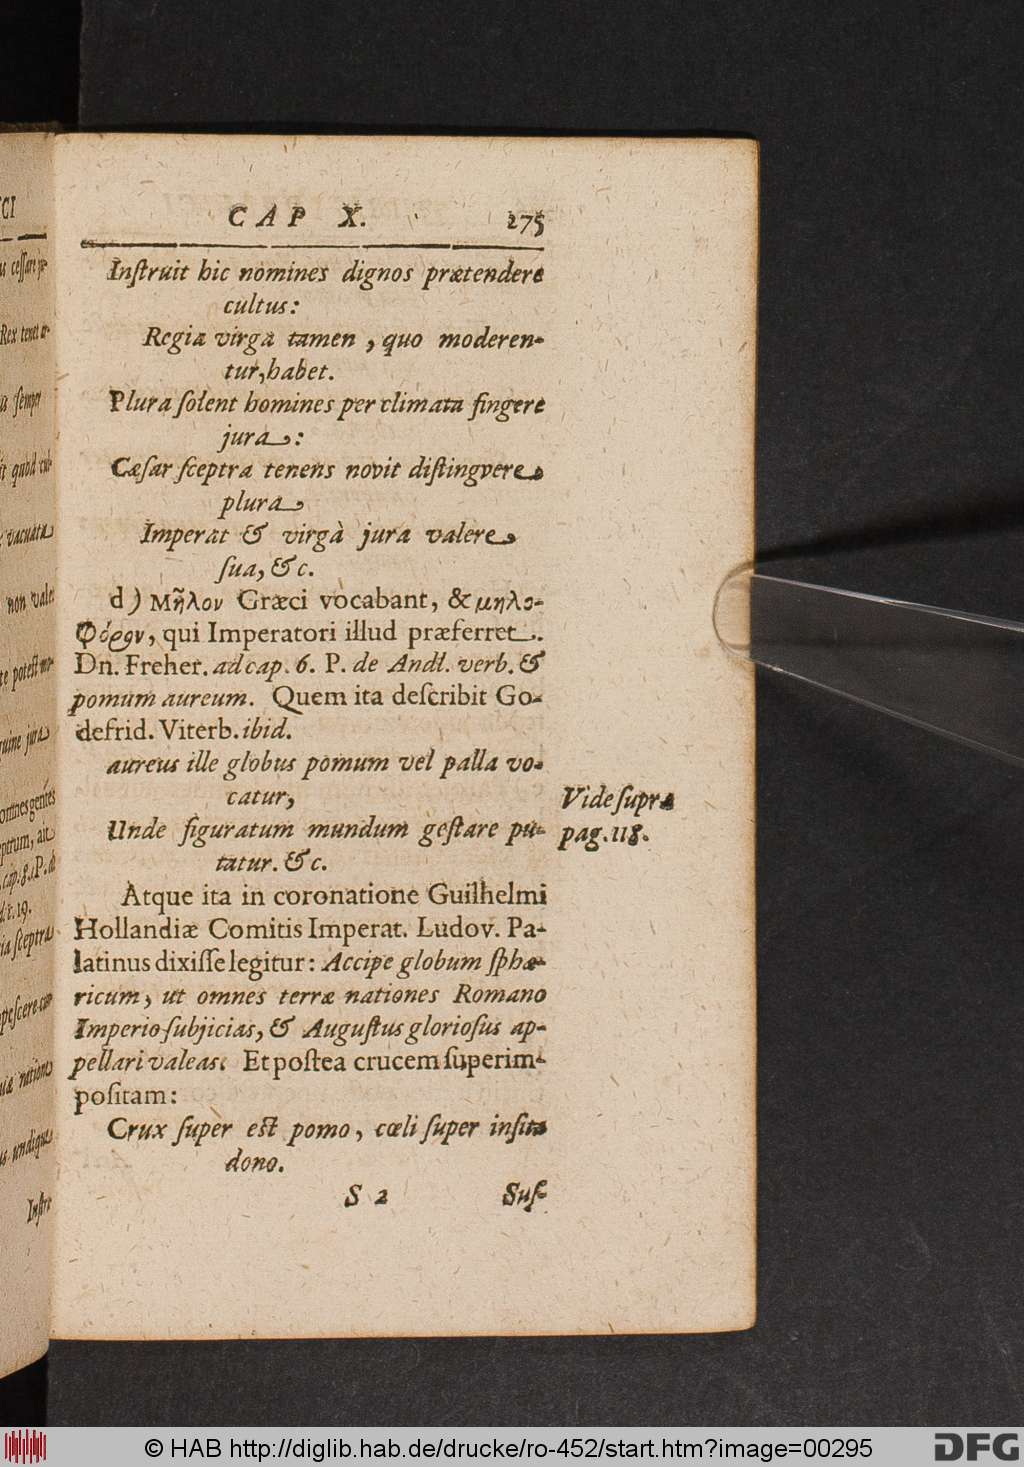 CAP X. 275
Instruit hic nomines dignos prætendere
cultus:
Regia virga tamen, quo moderen-
tur, habet.
Plura solent homines per climata fingere
jura:
Cæsar sceptra tenens novit distingvere
plura
Imperat & virgà jura valere
sua, &c.
d) Μῆλον Græci vocabant, & μηλο-
φόρον, qui Imperatori illud præferret.
Dn. Freher. ad cap. 6. P. de Andl. verb. &
pomum aureum. Quem ita describit Go-
defrid. Viterb. ibid.
aureus ille globus pomum vel palla vo-
catur,
Unde figuratum mundum gestare pu-
tatur. &c.
Vide supra
pag. 118.
Atque ita in coronatione Guilhelmi
Hollandiæ Comitis Imperat. Ludov. Pa-
latinus dixisse legitur: Accipe globum sphæ-
ricum, ut omnes terræ nationes Romano
Imperio subjicias, & Augustus gloriosus ap-
pellari valeas. Et postea crucem superim-
positam:
Crux super est pomo, cœli super insita
dono.
S 2 Suf-
© HAB http://diglib.hab.de/drucke/ro-452/start.htm?image=00295
DFG